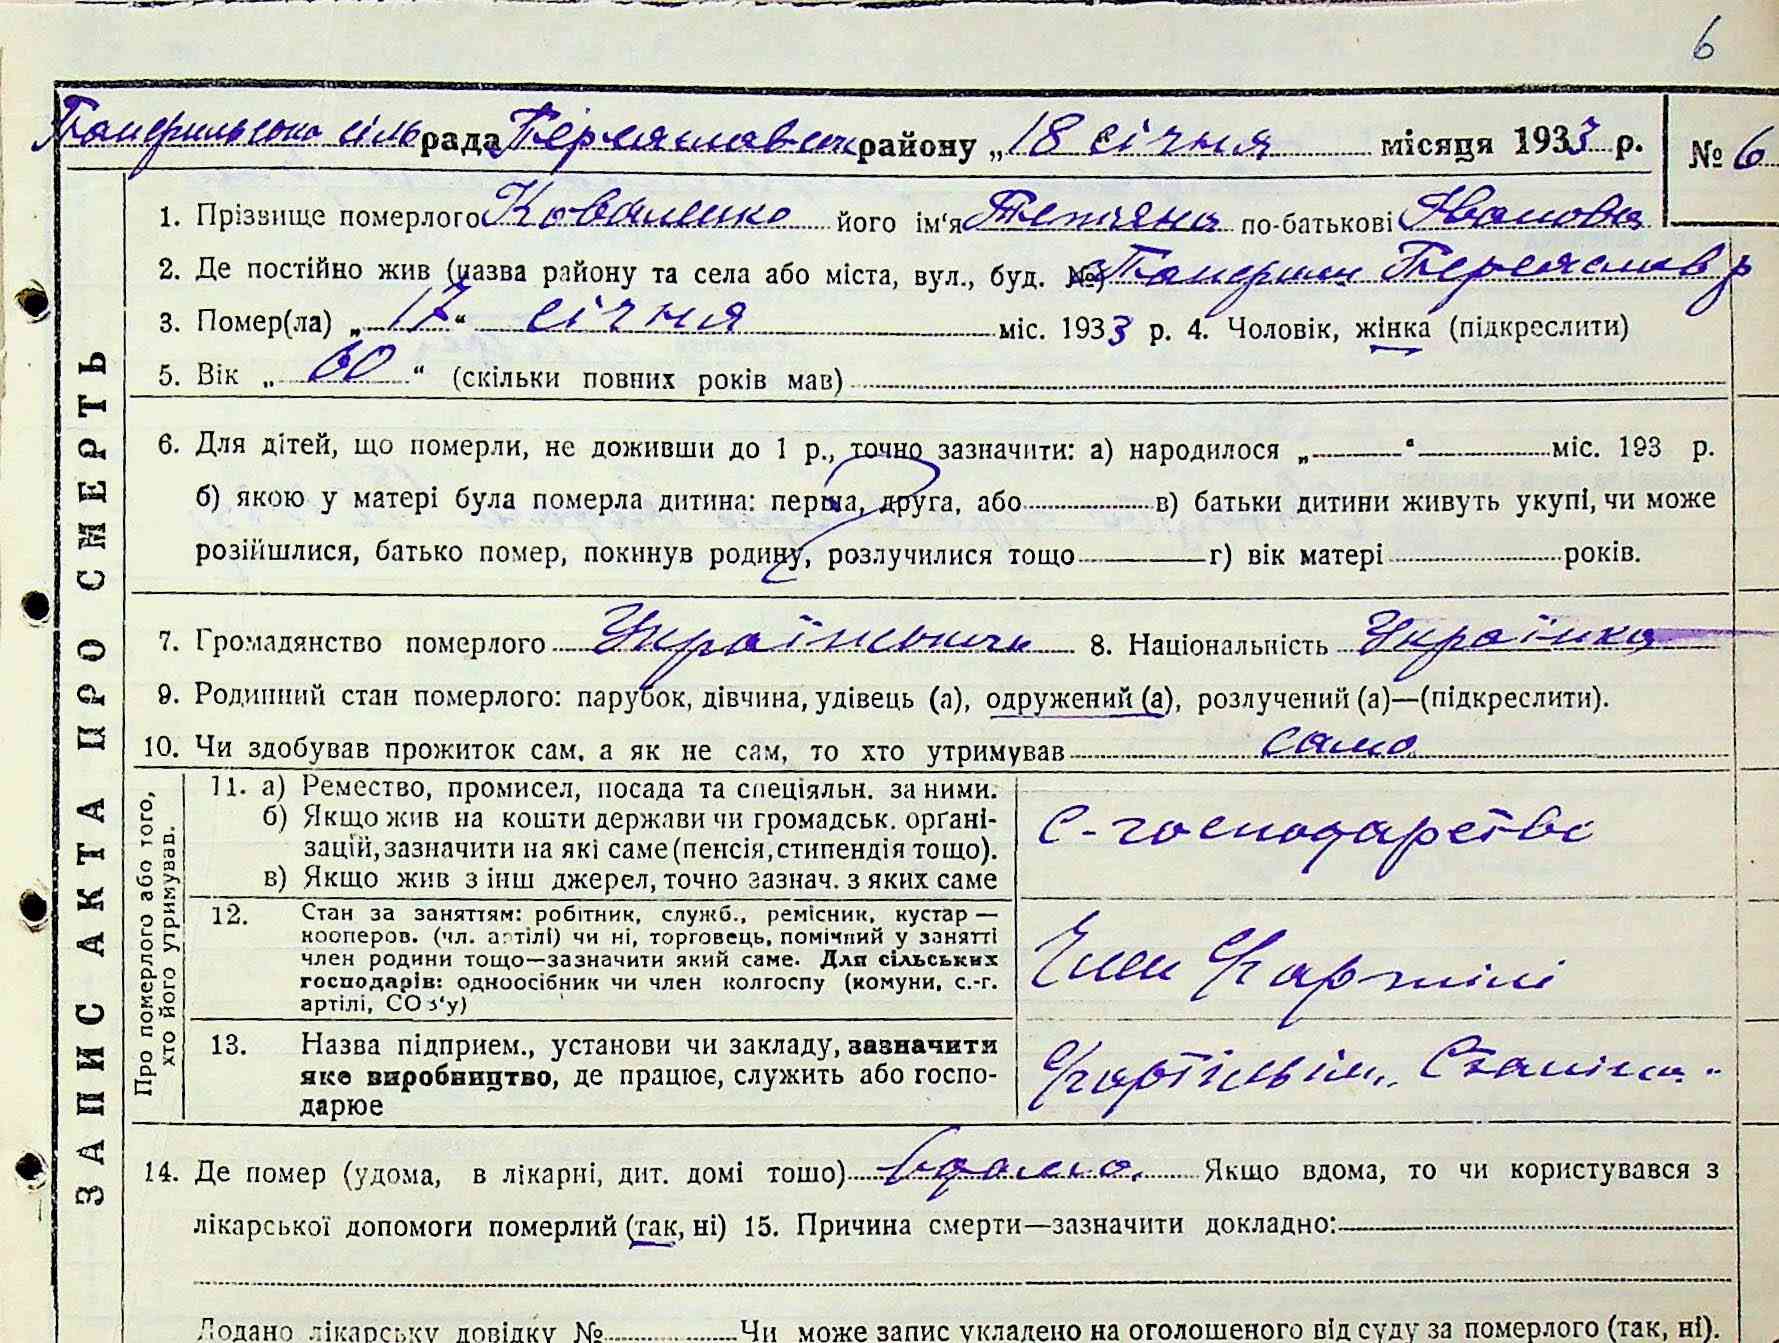 6
сіль рада Переяславськ району „ 18 січня місяця 1933 р. № 6
1. Прізвище померлого Коваленко його ім'я Тетяна по-батькові Івановна
2. Де постійно жив (назва району та села або міста, вул., буд. №) Переяслав р
3. Помер(ла) „ 17 “ січня міс. 1933 р. 4. Чоловік, жінка (підкреслити)
5. Вік „ 60 “ (скільки повних років мав)
6. Для дітей, що померли, не доживши до 1 р., точно зазначити: а) народилося „ “ міс. 193 р.
б) якою у матері була померла дитина: перша, друга, або в) батьки дитини живуть укупі, чи може
розійшлися, батько помер, покинув родину, розлучилися тощо г) вік матері років.
7. Громадянство померлого 8. Національність Українка
9. Родинний стан померлого: парубок, дівчина, удівець (а), одружений (а), розлучений (а)—(підкреслити).
10. Чи здобував прожиток сам, а як не сам, то хто утримував сама
ЗАПИС АКТА ПРО СМЕРТЬ
Про померлого або того,
хто його утримував.
11. а) Ремество, промисел, посада та спеціяльн. за ними.
б) Якщо жив на кошти держави чи громадськ. орґані-
зацій, зазначити на які саме (пенсія, стипендія тощо).
в) Якщо жив з інш джерел, точно зазнач. з яких саме
с-господарство
12. Стан за заняттям: робітник, служб., ремісник, кустар —
кооперов. (чл. артілі) чи ні, торговець, помічний у занятті
член родини тощо—зазначити який саме. Для сільських
господарів: одноосібник чи член колгоспу (комуни, с.-г.
артілі, СОЗ'у)
Член артілі
13. Назва підприєм., установи чи закладу, зазначити
яке виробництво, де працює, служить або госпо-
дарює
14. Де помер (удома, в лікарні, дит. домі тошо) вдома. Якщо вдома, то чи користувався з
лікарської допомоги померлий (так, ні) 15. Причина смерти—зазначити докладно:
Додано лікарську довідку № Чи може запис укладено на оголошеного від суду за померлого (так, ні).